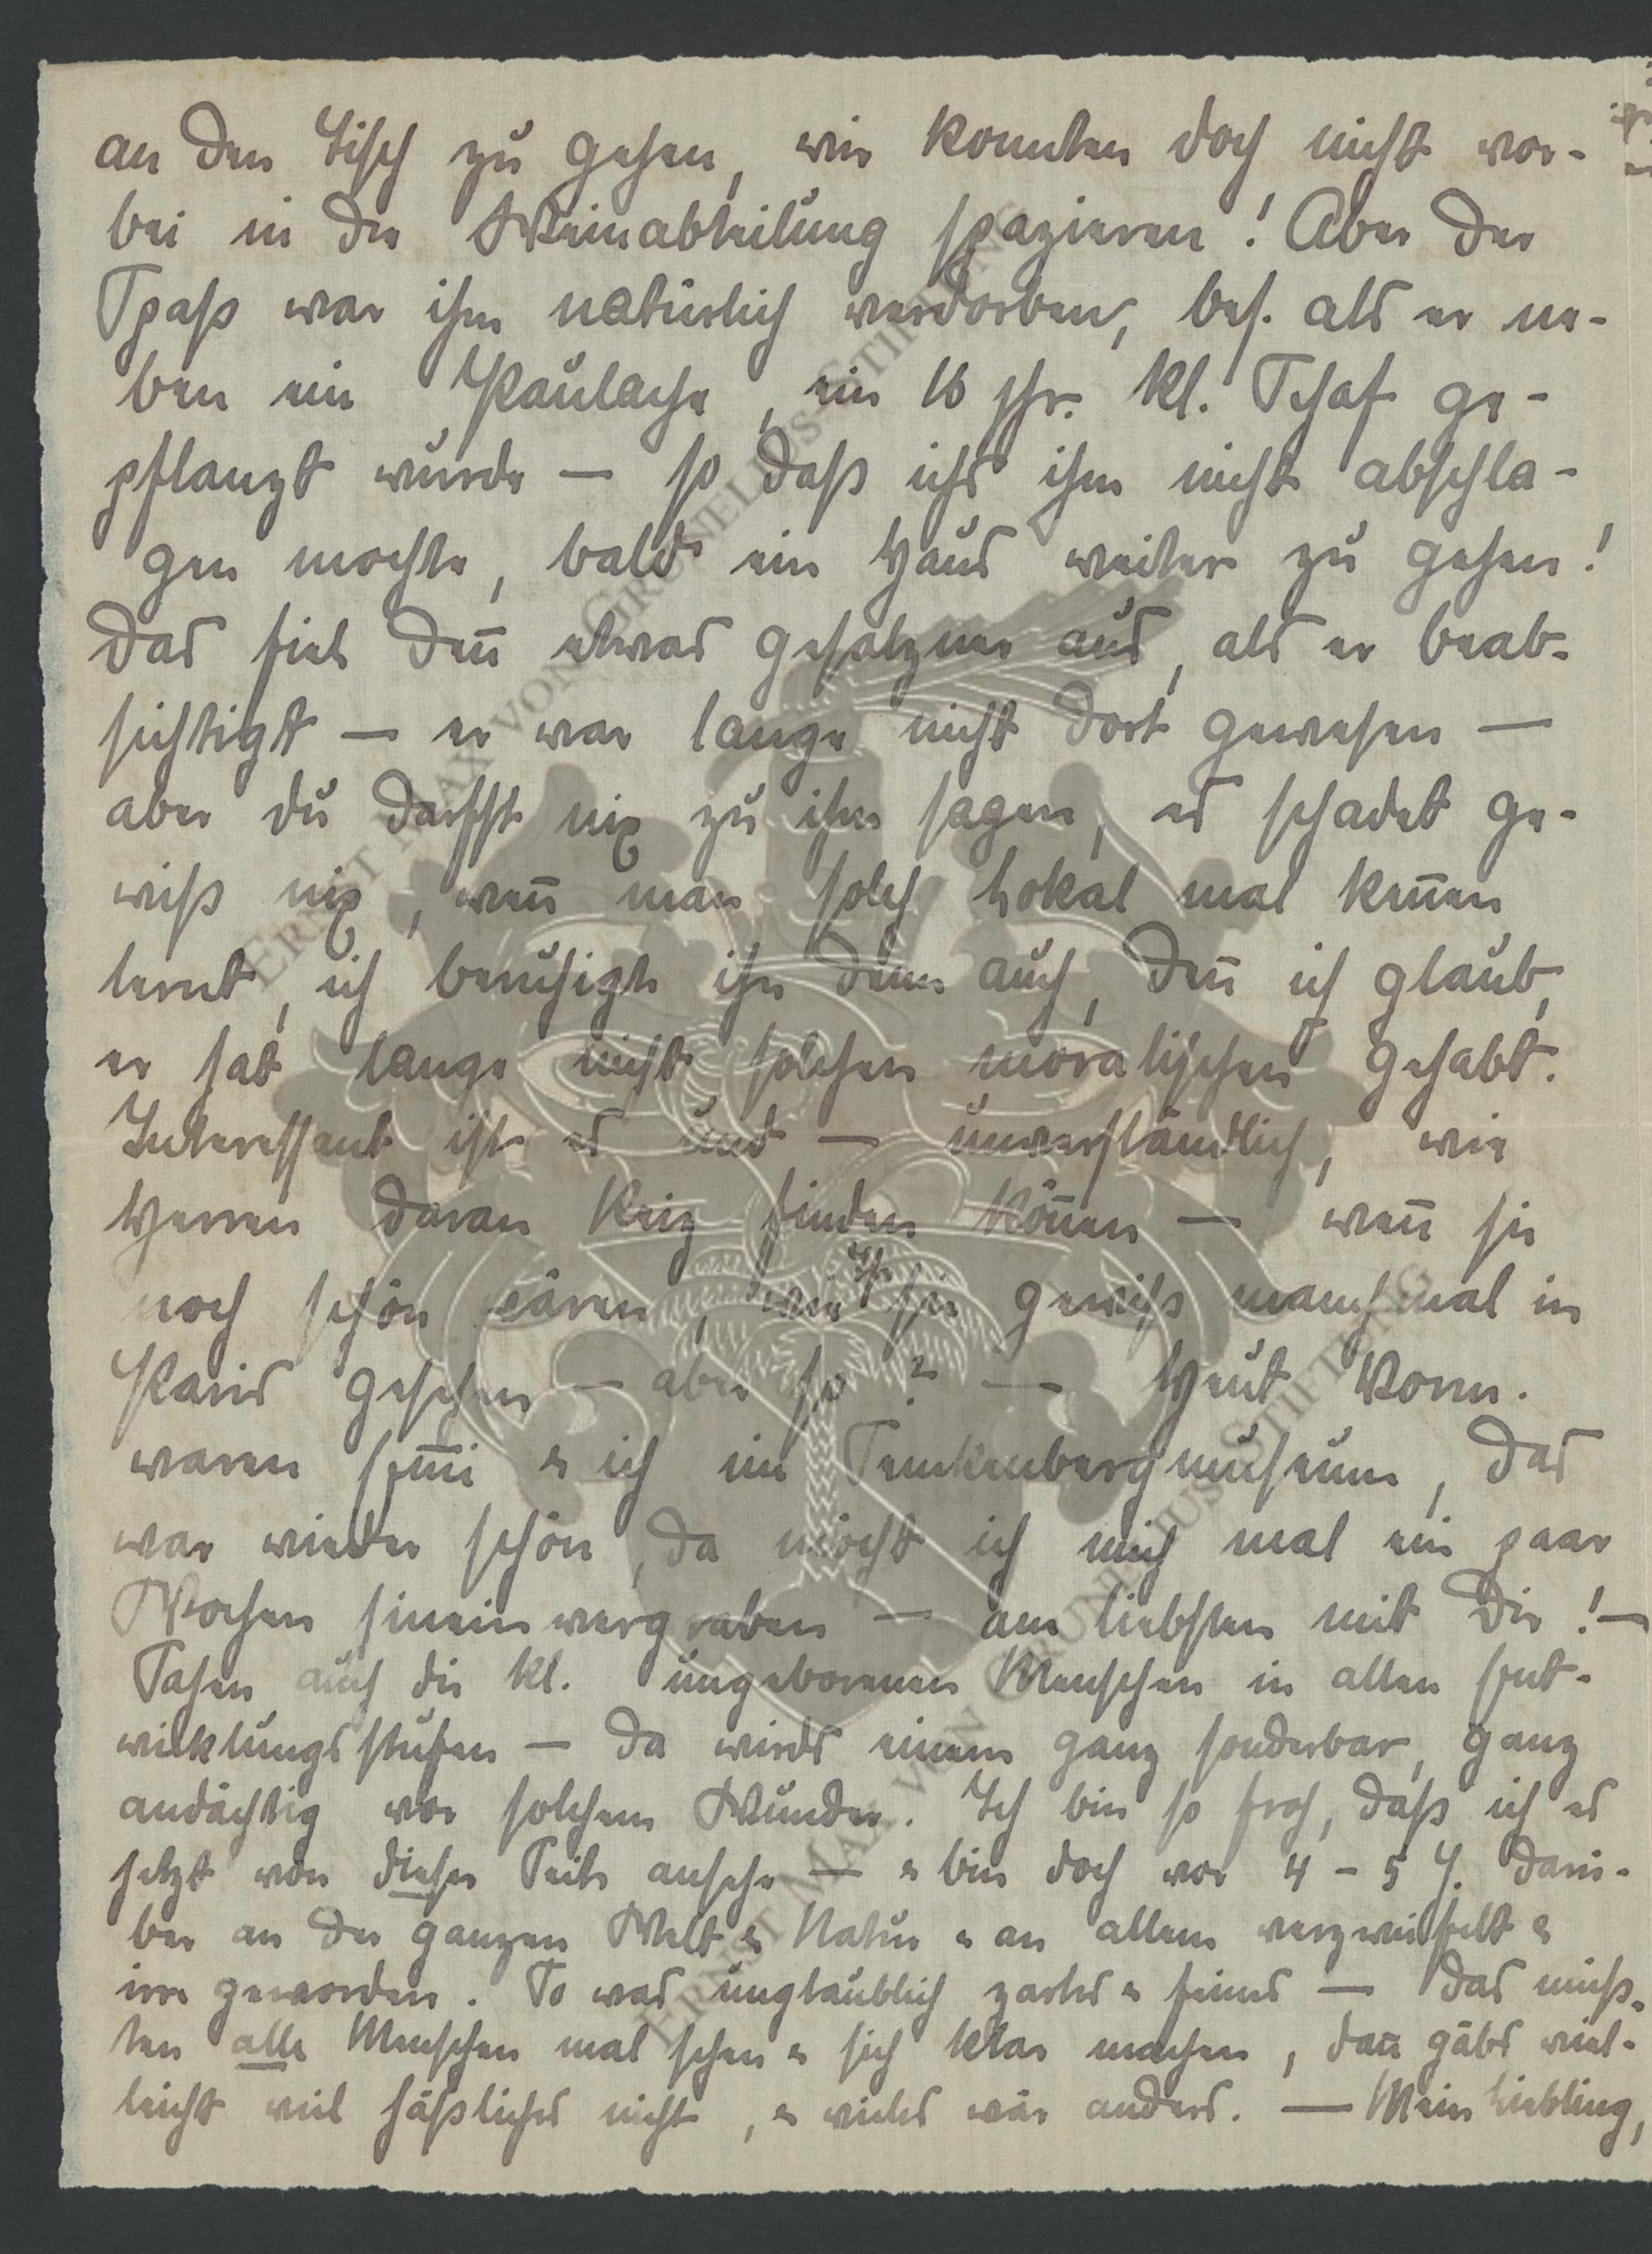 an den Tisch zu gehen, wir konnten doch nicht vor-
bei in die Weinabteilung spazieren! Aber der
Spaß war ihm natürlich verdorben, bes. als er ne-
ben ein Paulache, ein 16 jhr. kl. Schaf ge-
pflanzt wurde — so daß ichs ihm nicht abschla-
gen mochte, bald ein Haus weiter zu gehen!
Das fiel den̄ etwas gesalzner aus, als er beab-
sichtigt — er war lange nicht dort gewesen —
aber du darfst nix zu ihm sagen, es schadet ge-
wiß nix, wen̄ man solch Lokal mal ken̄en
lernt, ich beruhigte ihn denn auch, den̄ ich glaub,
er hat lange nicht solchen moralischen gehabt.
Interessant ist es und — unverständlich, wie
Herren daran Reiz finden kön̄en — wen̄ sie
noch schön wären, wie Ihr sie gewiß manchmal in
Paris gesehen — aber so? — Heut Vorm.
waren Em̄i & ich im Senckenbergmuseum, das
war wieder schön, da möcht ich mich mal ein paar
Wochen hineinvergraben — am liebsten mit Dir! —
Sahen auch die kl. ungeborenen Menschen in allen Ent-
wicklungsstufen — da wirds einem ganz sonderbar, ganz
andächtig vor solchem Wunder. Ich bin so froh, daß ich es
jetzt von dieser Seite ansehe — & bin doch vor 4 - 5 J. darü-
ber an der ganzen Welt & Natur & an allem verzweifelt &
irre geworden. So was unglaublich zartes & feines — das müß-
ten alle Menschen mal sehen & sich klar machen, dan̄ gäbs viel-
leicht viel häßliches nicht, & vieles wär anders. — Mein Liebling,
ERNST MAX VON GRUNELIUS-STIFTUNG
ERNST MAX VON GRUNELIUS-STIFTUNG